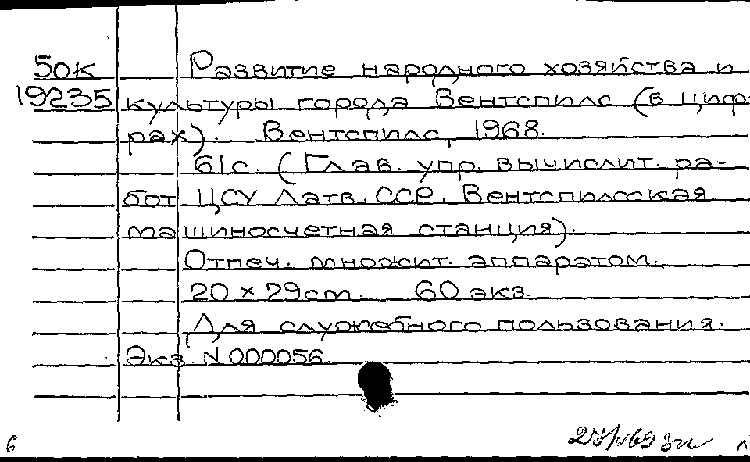 50к Развитие народного хозяйства и
19235 культуры города Вентспилс (в циф-
рах). Вентспилс, 1968.
61с. (Глав. упр. вычислит. ра-
бот ЦСУ Латв. ССР. Вентспилсская
машиносчетная станция).
Отпеч. множит. аппаратом.
20 × 29cm. 60 экз.
Для служебного пользования.
Экз. N 000056
6